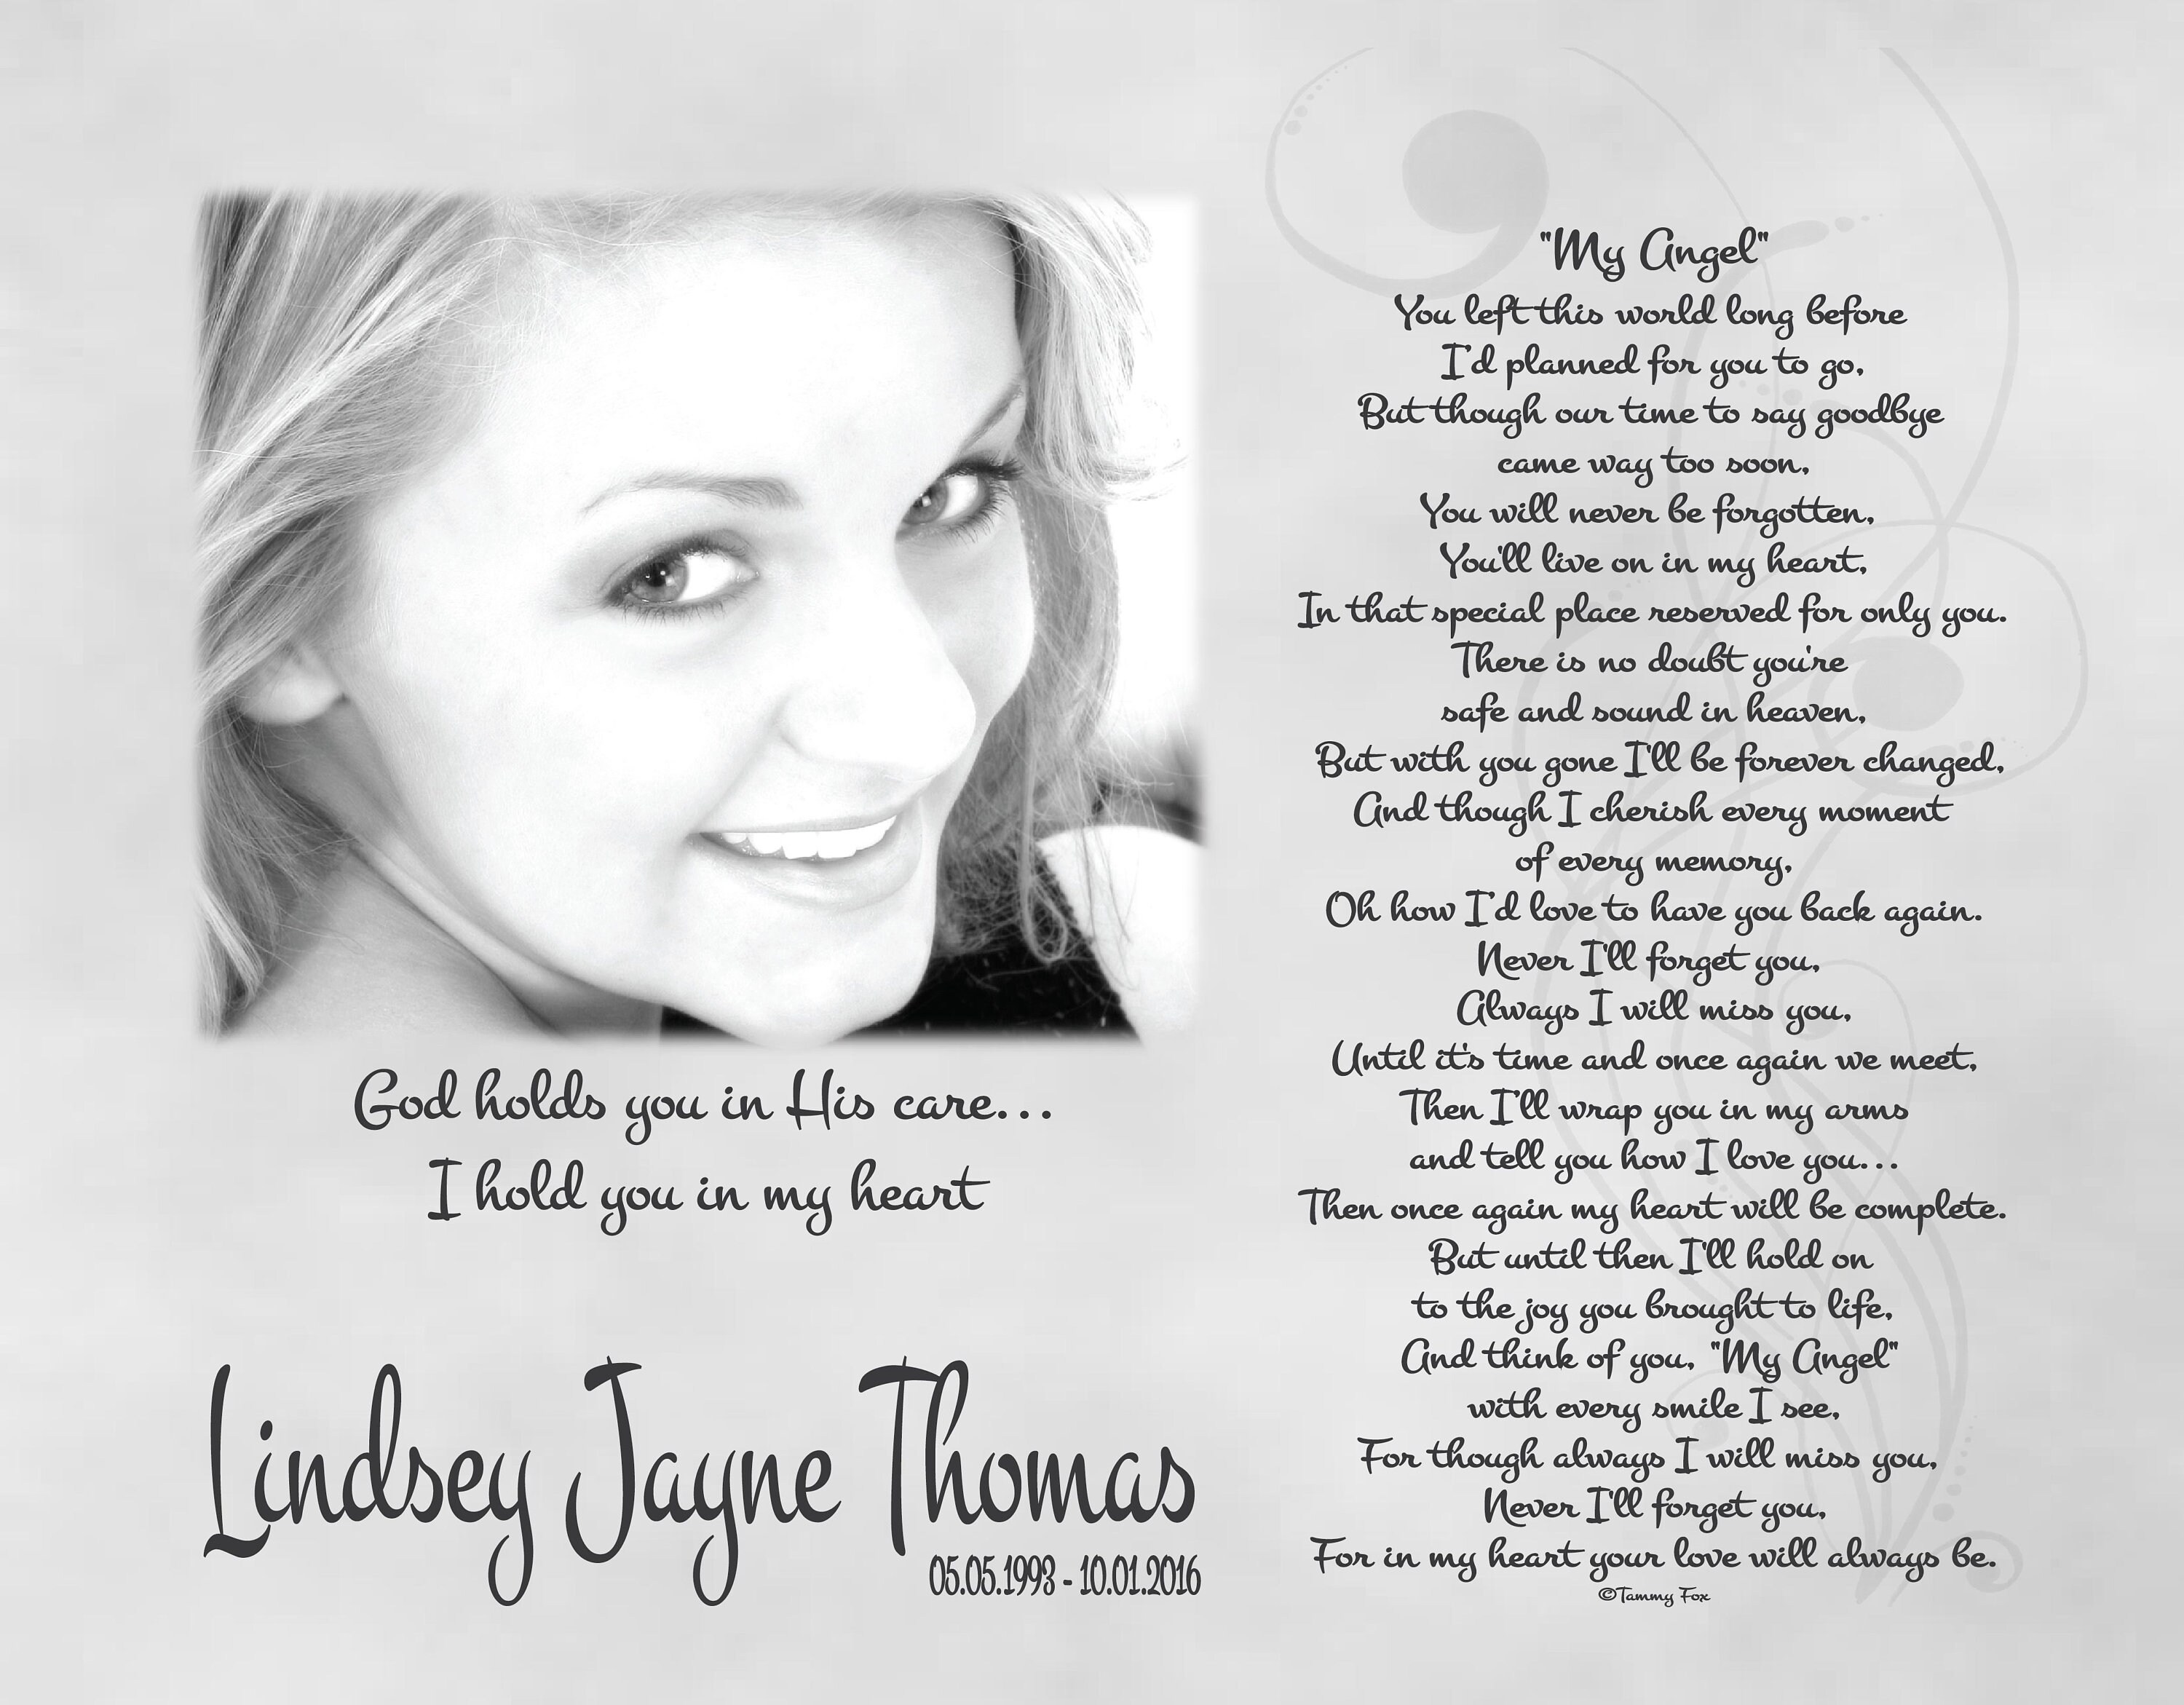 God holds you in His care...
I hold you in my heart
Lindsey Jayne Thomas
05.05.1993 - 10.01.2016
"My Angel"
You left this world long before
I'd planned for you to go,
But though our time to say goodbye
came way too soon,
You will never be forgotten,
You'll live on in my heart,
In that special place reserved for only you.
There is no doubt you're
safe and sound in heaven,
But with you gone I'll be forever changed,
And though I cherish every moment
of every memory,
Oh how I'd love to have you back again.
Never I'll forget you,
Always I will miss you,
Until it's time and once again we meet,
Then I'll wrap you in my arms
and tell you how I love you...
Then once again my heart will be complete.
But until then I'll hold on
to the joy you brought to life,
And think of you, "My Angel"
with every smile I see,
For though always I will miss you,
Never I'll forget you,
For in my heart your love will always be.
©Tammy Fox